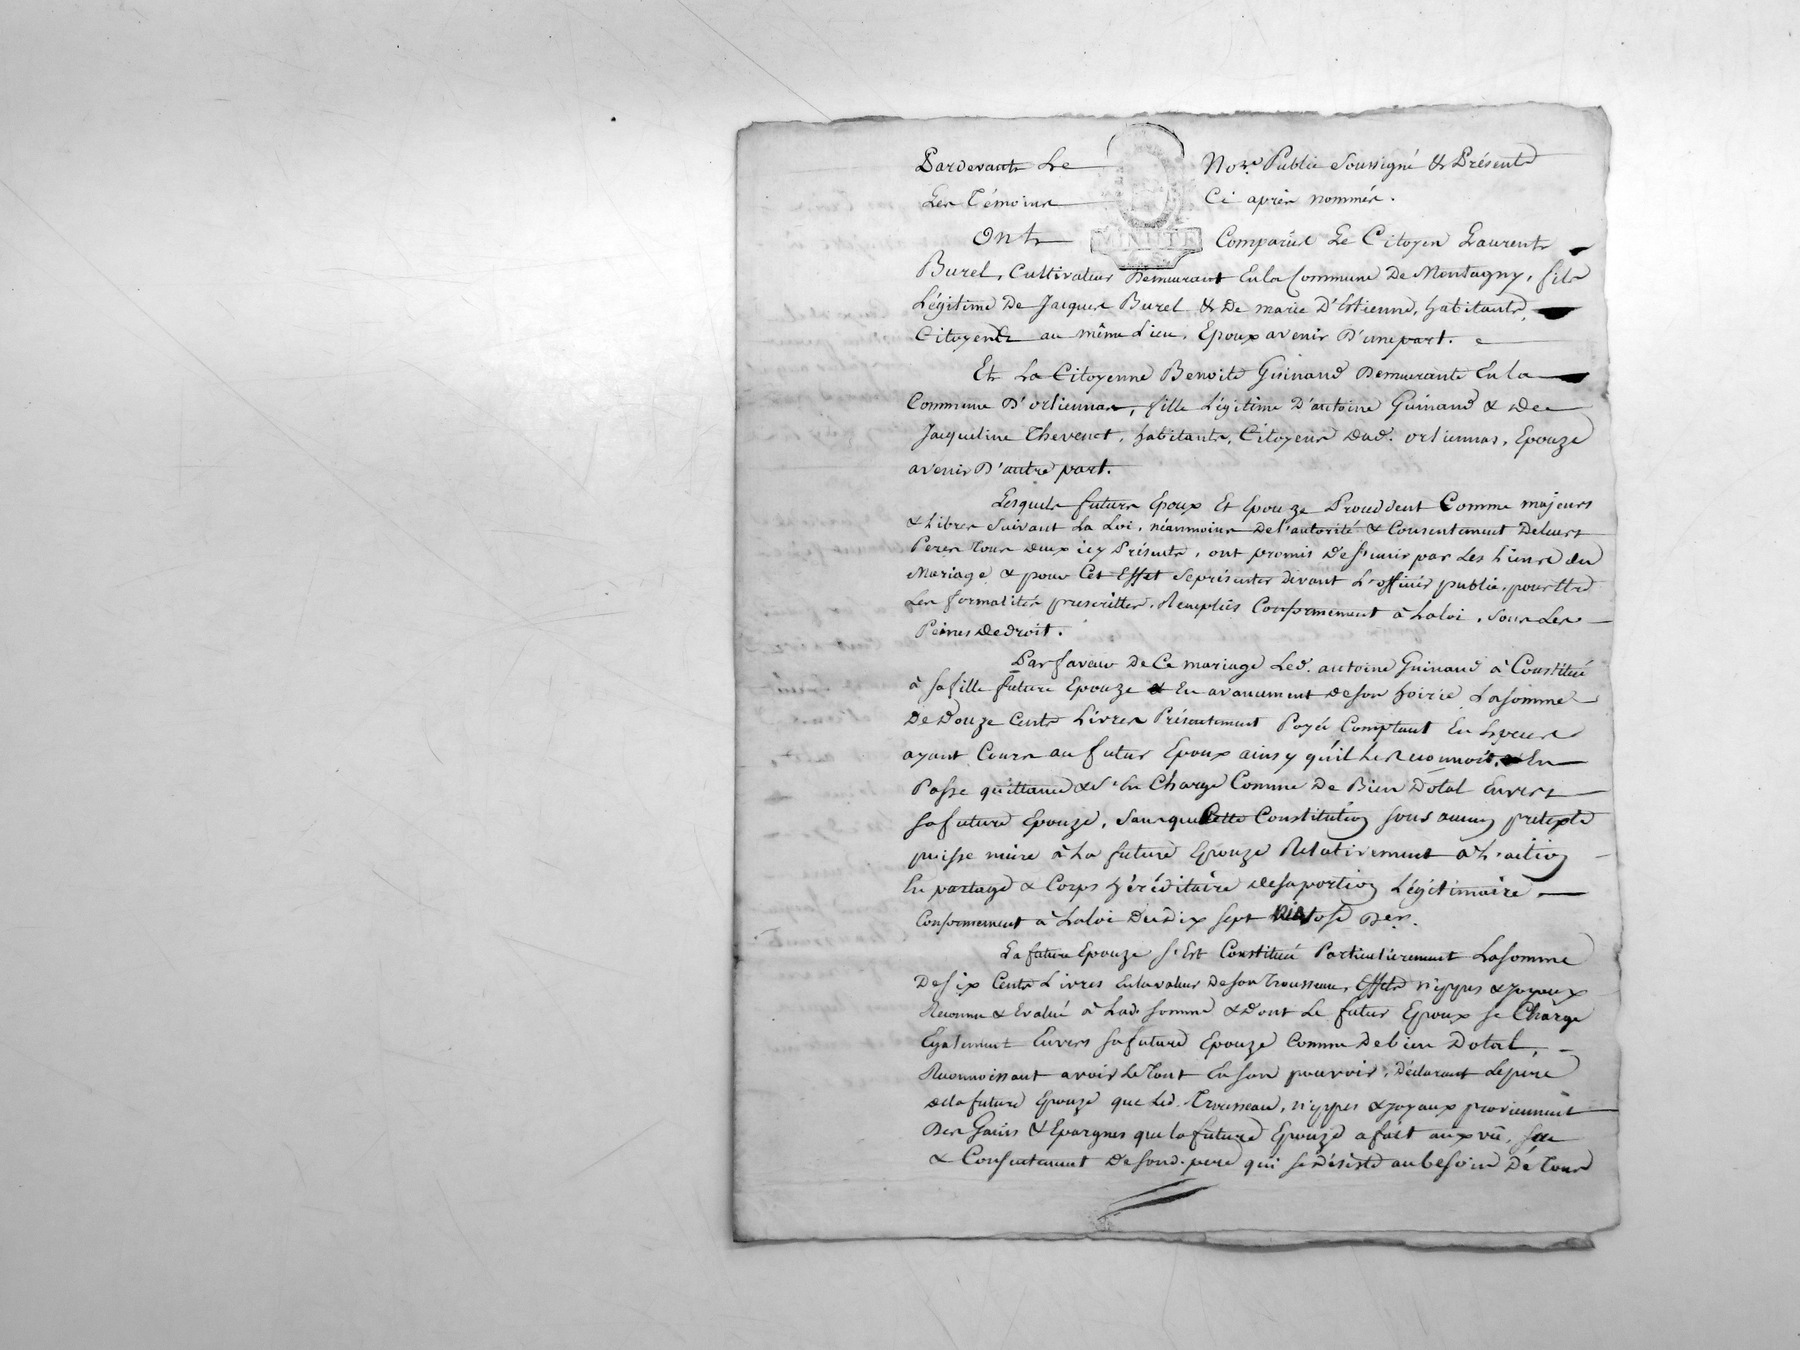 Pardevant Le Nore. Public soussigné & Présents
Les Témoins Ci après nommés.
MINUTE
Ont Comparüs Le Citoyen Laurent
Burel, Cultivateur Demeurant En la Commune De Montagny, fils
Légitime De Jacques Burel & De marie D'Estienne, habitants,
Citoyens au même Lieu, Epoux avenir D'une part.
Et La Citoyenne Benoite Guinand Demeurante En la
Commune D'orliennas, fille Légitime D'antoine Guinand & De
Jacqueline Thevenet, habitants, Citoyens Dud. orliennas, Epouze
avenir D'autre part.
Lesquels futurs Epoux Et Epouze Procedent Comme majeurs
& Libres Suivant La Loi, néanmoins De L'autorité & Consentement De Leurs
Peres Tous Deux icy Présents, ont promis De s'unir par Les Liens du
Mariage & pour Cet Effet Se présenter devant L'officier public, pour Etre
Les formalités prescrittes, Remplies Conformement à La loi, Sous Les
Peines De droit.
Par faveur De Ce mariage Led. antoine Guinand à Constitué
à Sa fille future Epouze & En avancement De Son hoirie La somme
De Douze Cents Livres Présentement Payée Comptant En Espèces
ayant Cours au futur Epoux ainsy qu'il Le Reconnoit, En
Passe quittance & S'En Charge Comme De Bien Dotal Envers
Sa future Epouze, Sans que Cette Constitution Sous aucun pretexte
puisse nuire à La future Epouze Relativement à L'action
En partage & Corps héréditaire De Sa portion Légitimaire
Conformement à La loi Du Dix Sept nivose Der.
La future Epouze S'Est Constitué Particulierement La somme
De Six Cents Livres En la valeur De Son Trousseau, Effets nippes & Joyaux
Reconnu & Evalué à Lad. Somme & Dont Le futur Epoux Se Charge
Egalement Envers Sa future Epouze Comme De bien Dotal,
Reconnoissant avoir Le Tout En Son pouvoir, Déclarant Le père
De la future Epouze que Led. Trousseau, nippes & Joyaux proviennent
Des Gains & Epargnes que la future Epouze a fait aux vû, Sçu
& Consentement De Sond. pere qui Se désiste au besoin De Tous